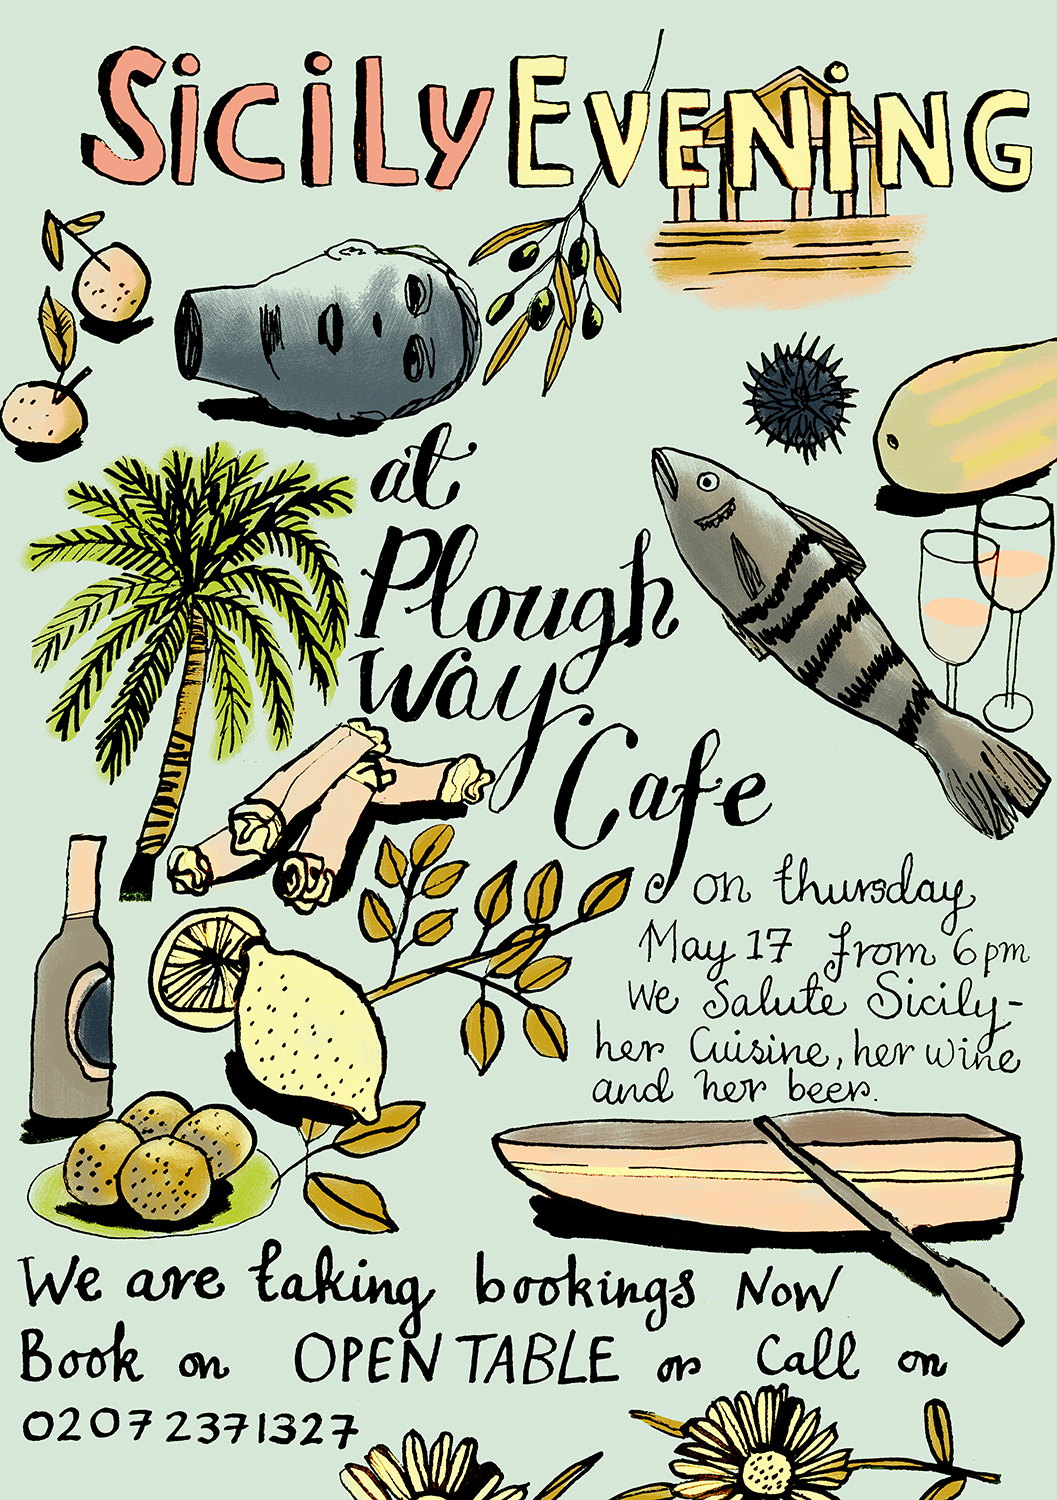 Sicily EVENING
at
Plough
Way
Cafe
on thursday
May 17 from 6pm
We Salute Sicily-
her Cuisine, her wine
and her beer.
We are taking bookings Now
Book on OPEN TABLE or Call on
02072371327